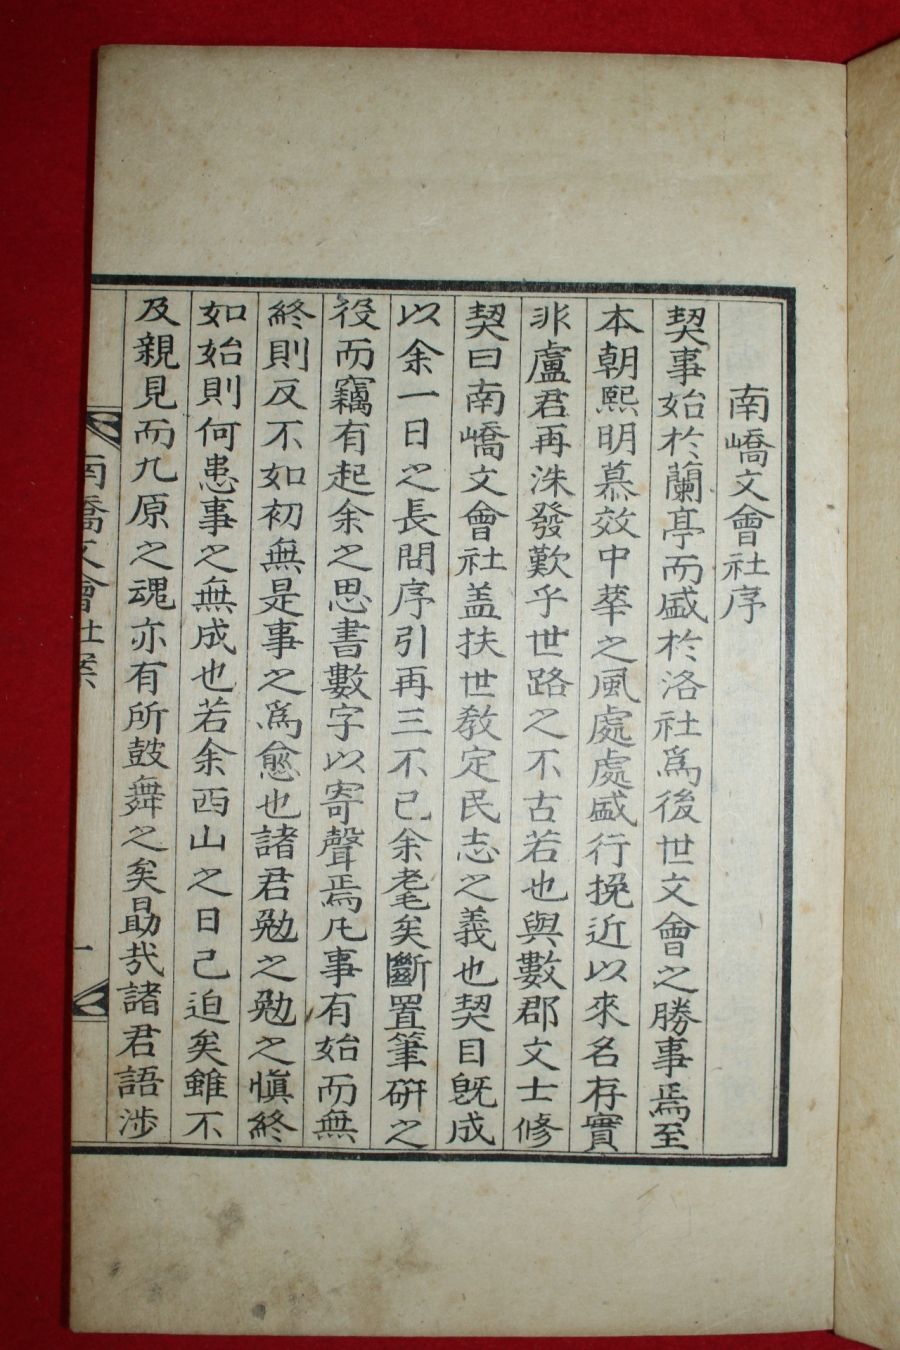 南嶠文會社序
契事始於蘭亭而盛於洛社爲後世文會之勝事焉至
本朝熙明慕效中華之風處處盛行挽近以來名存實
非盧君再洙發歎乎世路之不古若也與數郡文士修
契曰南嶠文會社盖扶世教定民志之義也契目旣成
以余一日之長問序引再三不已余耄矣斷置筆硏之
役而竊有起余之思書數字以寄聲焉凡事有始而無
終則反不如初無是事之爲愈也諸君勉之勉之愼終
如始則何患事之無成也若余西山之日已迫矣雖不
及親見而九原之魂亦有所鼓舞之矣勗哉諸君語涉
南嶠文會社案
一